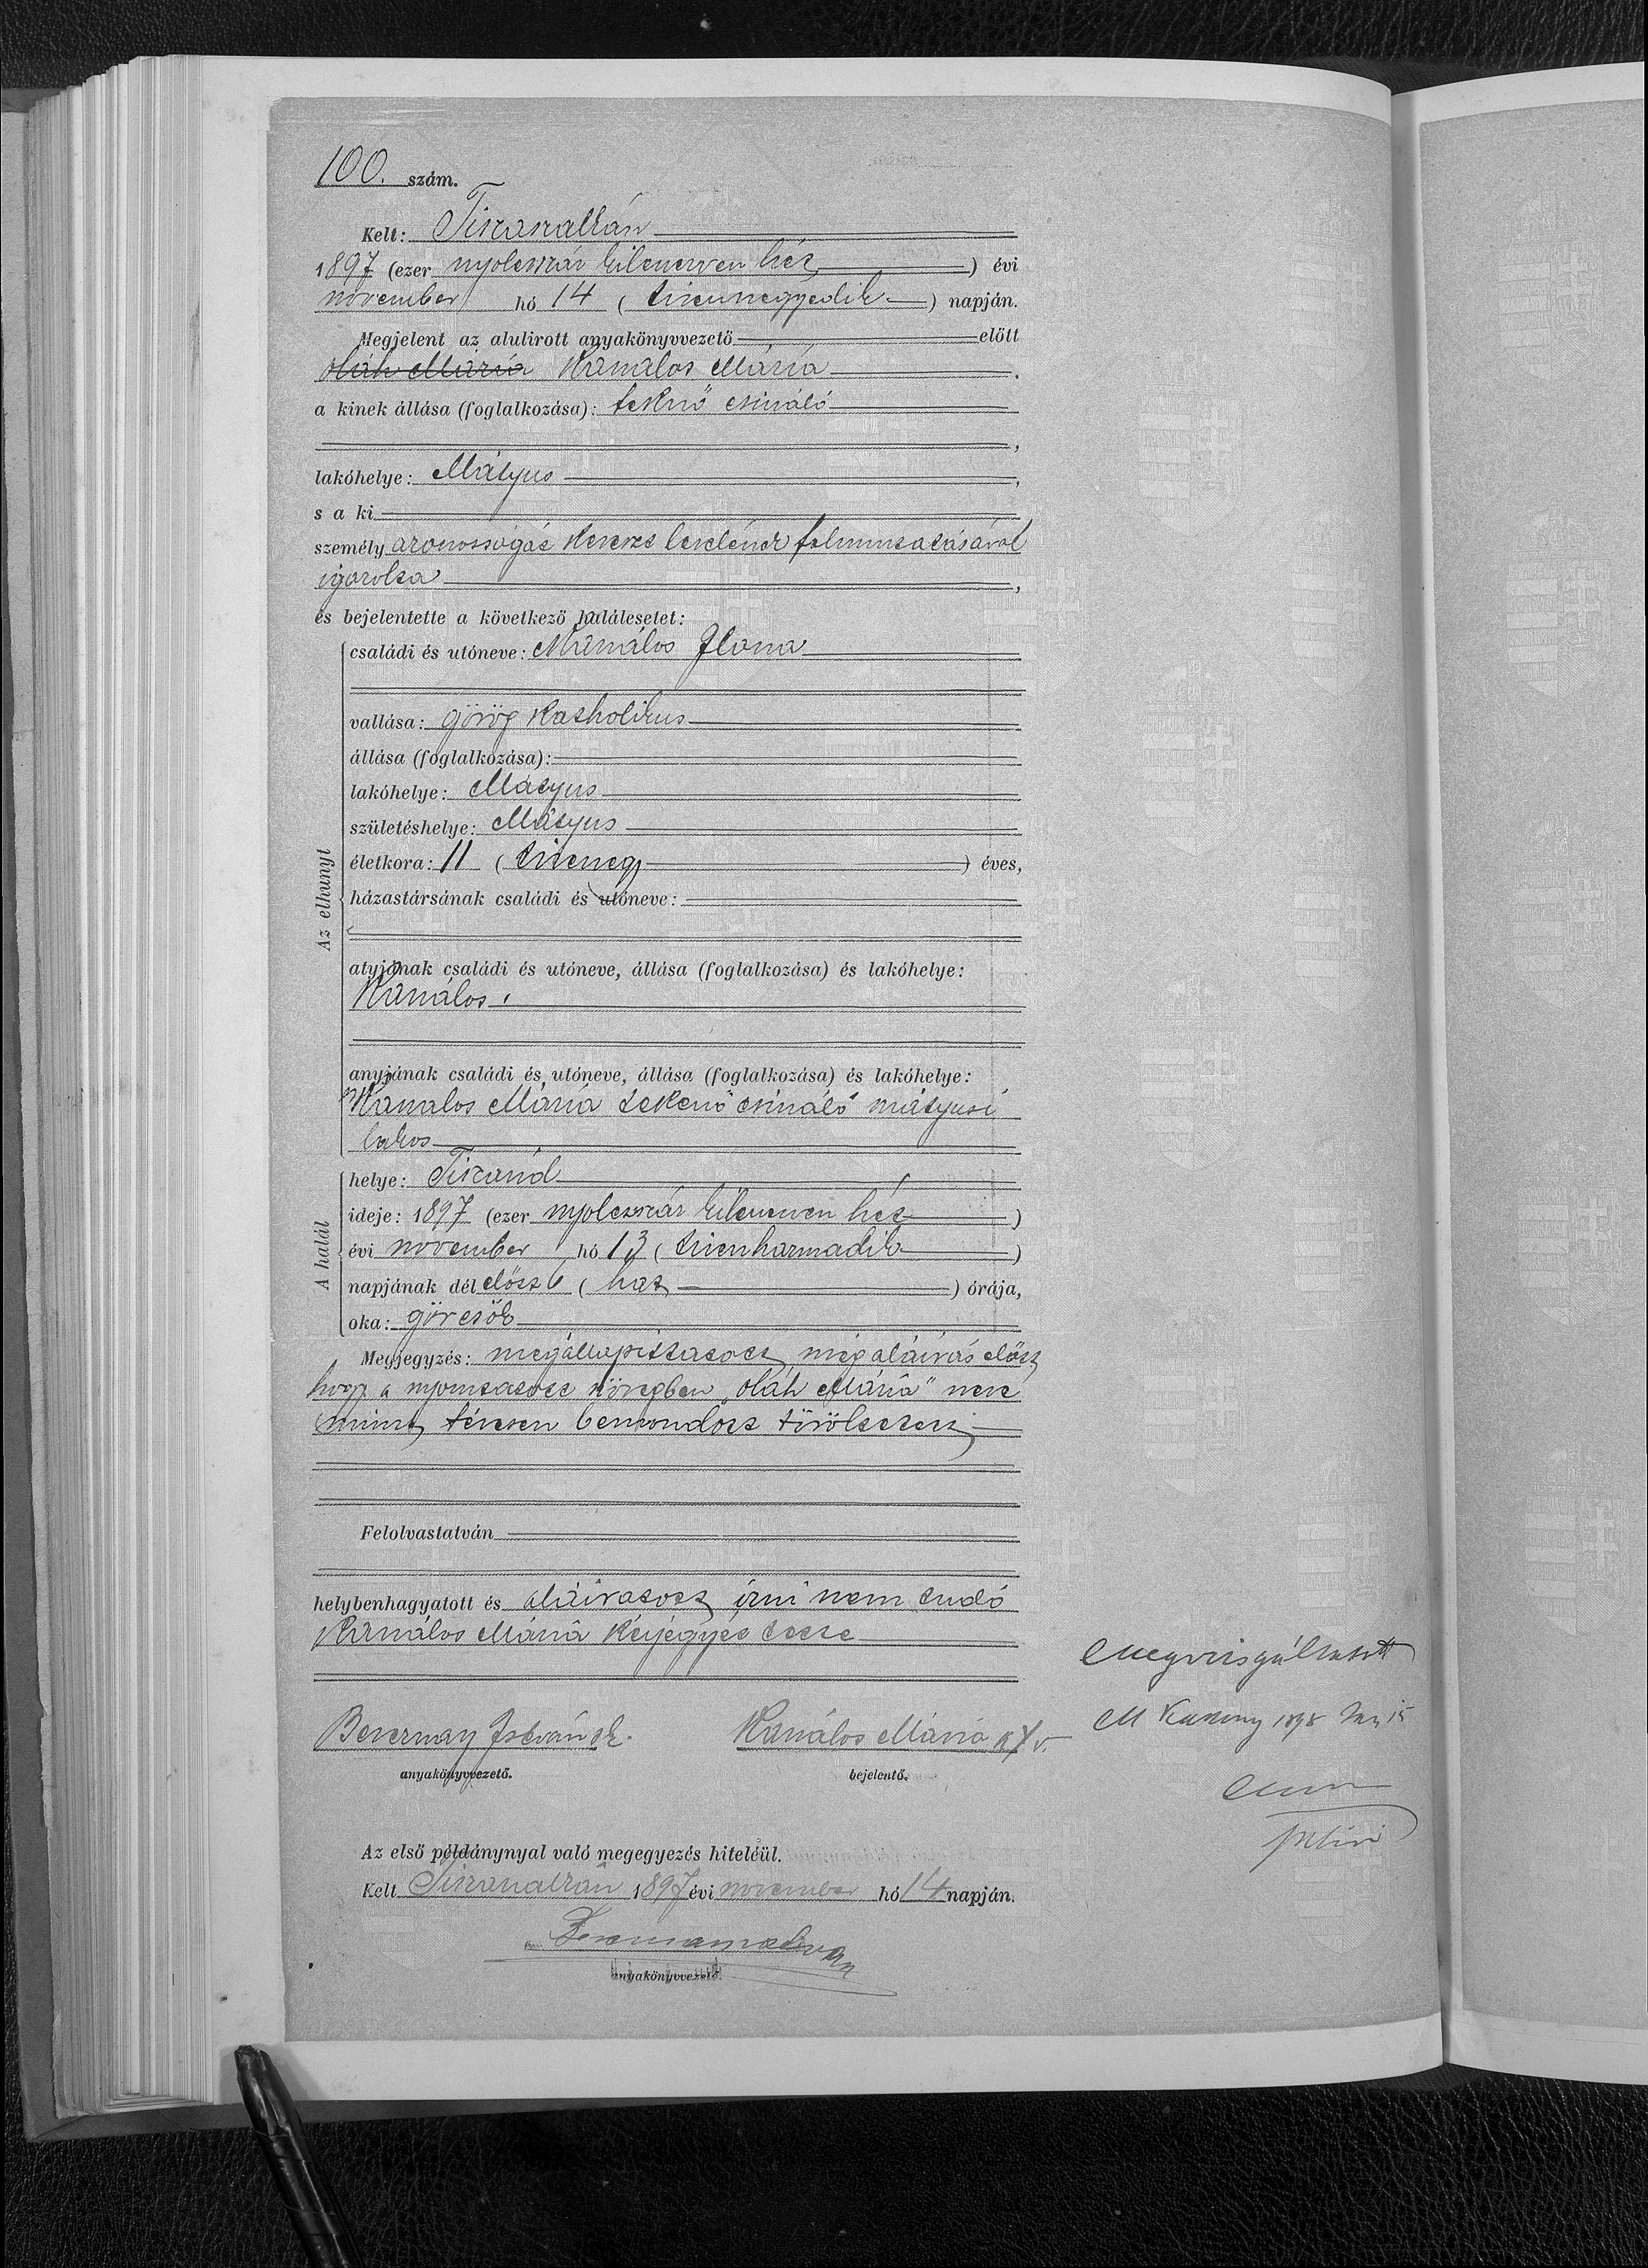 100. szám.
Kelt: Tiszaszalkán
1897 (ezer nyolczszáz kilenczven hét) évi
november hó 14 (tizennegyedik) napján.
Megjelent az alulirott anyakönyvvezető előtt
Oláh Mária Kanalos Mária
a kinek állása (foglalkozása): teknő csináló
lakóhelye: Mátyus
s a ki
személyazonosságát kereszt levelének felmutatásával
igazolta
és bejelentette a következő halálesetet:
Az elhunyt
családi és utóneve: Kanálos Ilona
vallása: görög katholikus
állása (foglalkozása):
lakóhelye: Mátyus
születéshelye: Mátyus
életkora: 11 (tizenegy) éves,
házastársának családi és utóneve:
atyjának családi és utóneve, állása (foglalkozása) és lakóhelye:
Kanálos
anyjának családi és utóneve, állása (foglalkozása) és lakóhelye:
Kanalos Mária tekenő csináló mátyusi
lakos
A halál
helye: Tiszaíd
ideje: 1897 (ezer nyolczszáz kilenczven hét)
évi november hó 13 (tizenharmadik)
napjának dél előtt 6 (hat) órája,
oka: görcsök
Megjegyzés: megállapittatott még aláirás előtt
hogy a nyomtatott szövegben "Oláh Mária" neve
mint tévesen bemondott töröltetett
Felolvastatván
helybenhagyatott és aláiratott irni nem tudó
Kanálos Mária kézjegyét tette
anyakönyvvezető.
Kanálos Mária k X v.
bejelentő.
Az első példánynyal való megegyezés hiteléül.
Kelt Tiszaszalkán 1897 évi november hó 14 napján.
anyakönyvvezető.
Megvizsgáltatott
M Kaszony 1898 Jan 15